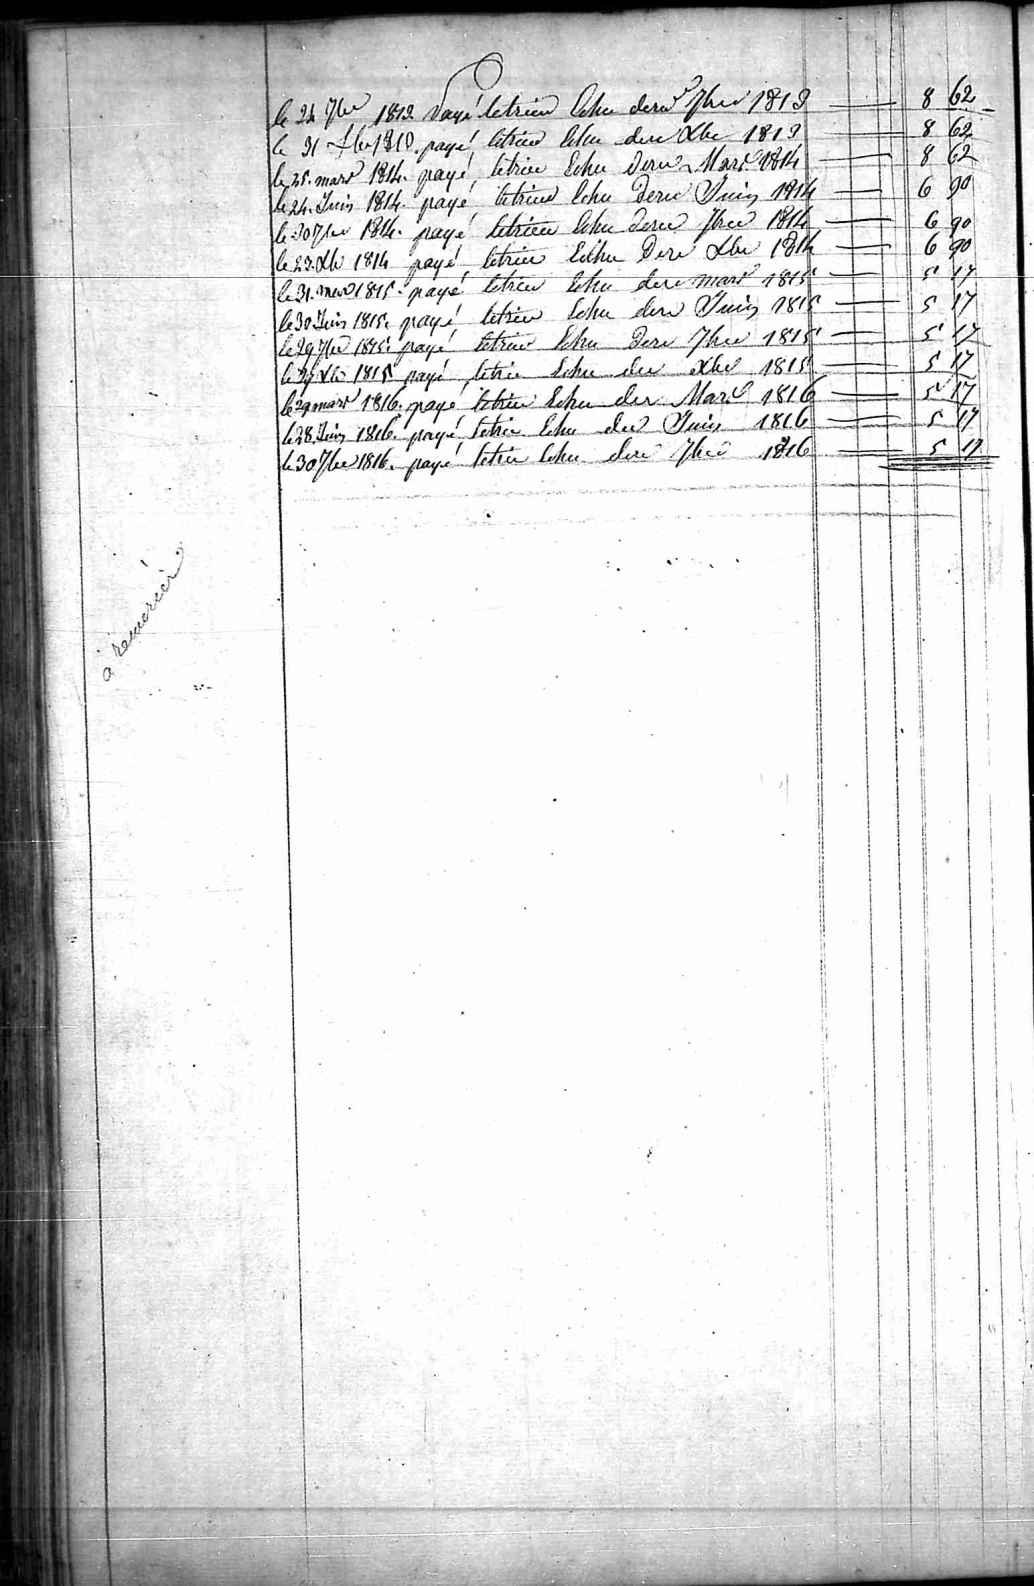 le 24 7bre 1813 payé letrim Echu derer 7bre 1813 8 62
le 31 Xbre 1813. payé letrim Echu derer Xbre 1813 8 62
le 25. mars 1814. payé letrim Echu Derer Mars 1814 8 62
le 24. Juin 1814. payé letrim Echu Derer Juin 1814 6 90
le 30 7bre 1814. payé letrim Echu Derer 7bre 1814 6 90
le 23. Xbre 1814 payé letrim Echu Derer Xbre 1814 6 90
le 31. mars 1815. payé letrim Echu derer mars 1815 5 17
le 30 Juin 1815. payé letrim Echu derer Juin 1815 5 17
le 29 7bre 1815. payé letrim Echu Derer 7bre 1815 5 17
le 29 Xbre 1815 payé letrim Echu der Xbre 1815 5 17
le 29 mars 1816. payé letrim Echu der Mars 1816 5 17
le 28. Juin 1816. payé letrim Echu der Juin 1816 5 17
le 30 7bre 1816. payé letrim Echu derer 7bre 1816 5 17
à remercié